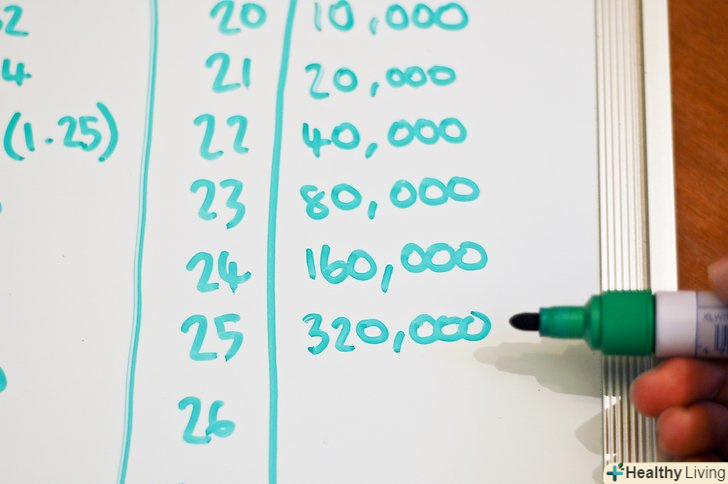 2 20 10,000
4 21 20,000
(1.25) 22 40,000
23 80,000
24 160,000
25 320,000
26
Healthy Living